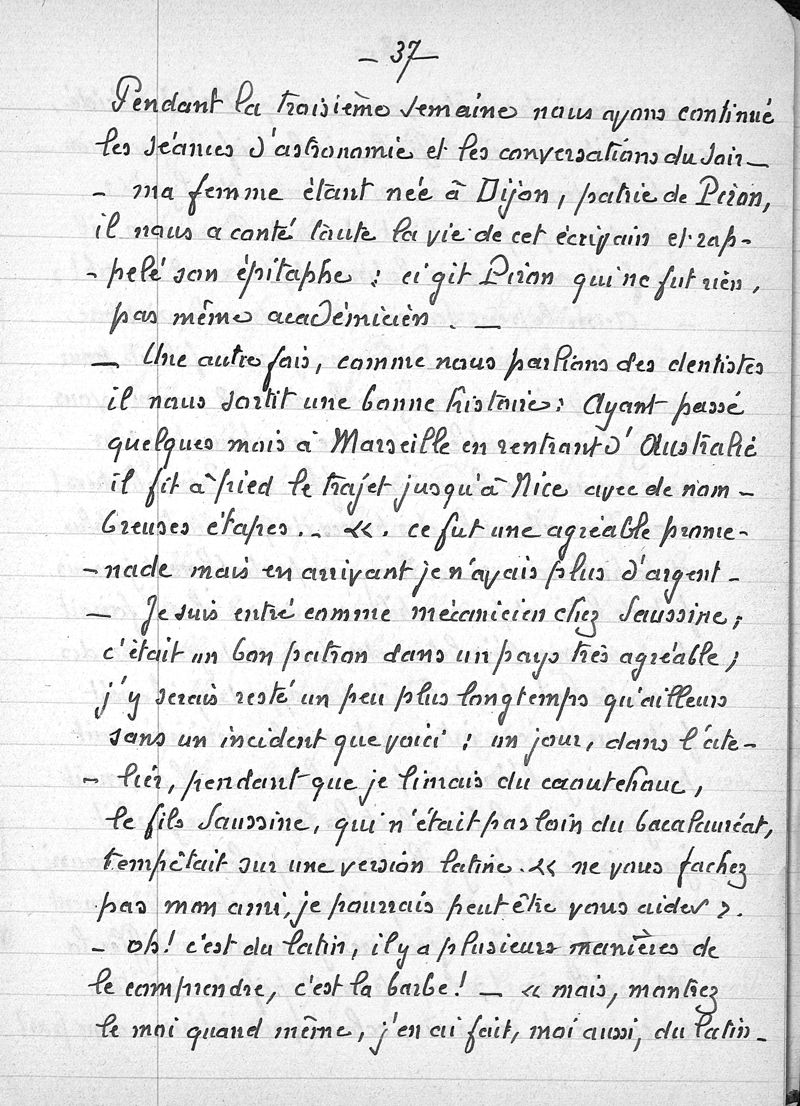 — 37 —
Pendant la troisième semaine nous avons continué
les séances d'astronomie et les conversations du soir —
- ma femme étant née à Dijon, patrie de Piron,
il nous a conté toute la vie de cet écrivain et rap-
- pelé son épitaphe : ci gît Piron qui ne fut rien,
pas même académicien. —
— Une autre fois, comme nous parlions des dentistes
il nous sortit une bonne histoire : Ayant passé
quelques mois à Marseille en rentrant d'Australie
il fit à pied le trajet jusqu'à Nice avec de nom -
breuses étapes. - «. ce fut une agréable prome-
- nade mais en arrivant je n'avais plus d'argent -
— Je suis entré comme mécanicien chez Saussine ;
c'était un bon patron dans un pays très agréable ;
j'y serais resté un peu plus longtemps qu'ailleurs
sans un incident que voici : un jour, dans l'ate-
- lier, pendant que je limais du caoutchouc,
le fils Saussine, qui n'était pas loin du bacalauréat,
tempêtait sur une version latine. « ne vous fachez
pas mon ami, je pourrais peut être vous aider ».
- oh ! c'est du latin, il y a plusieurs manières de
le comprendre, c'est la barbe ! — « mais, montrez
le moi quand même, j'en ai fait, moi aussi, du latin -